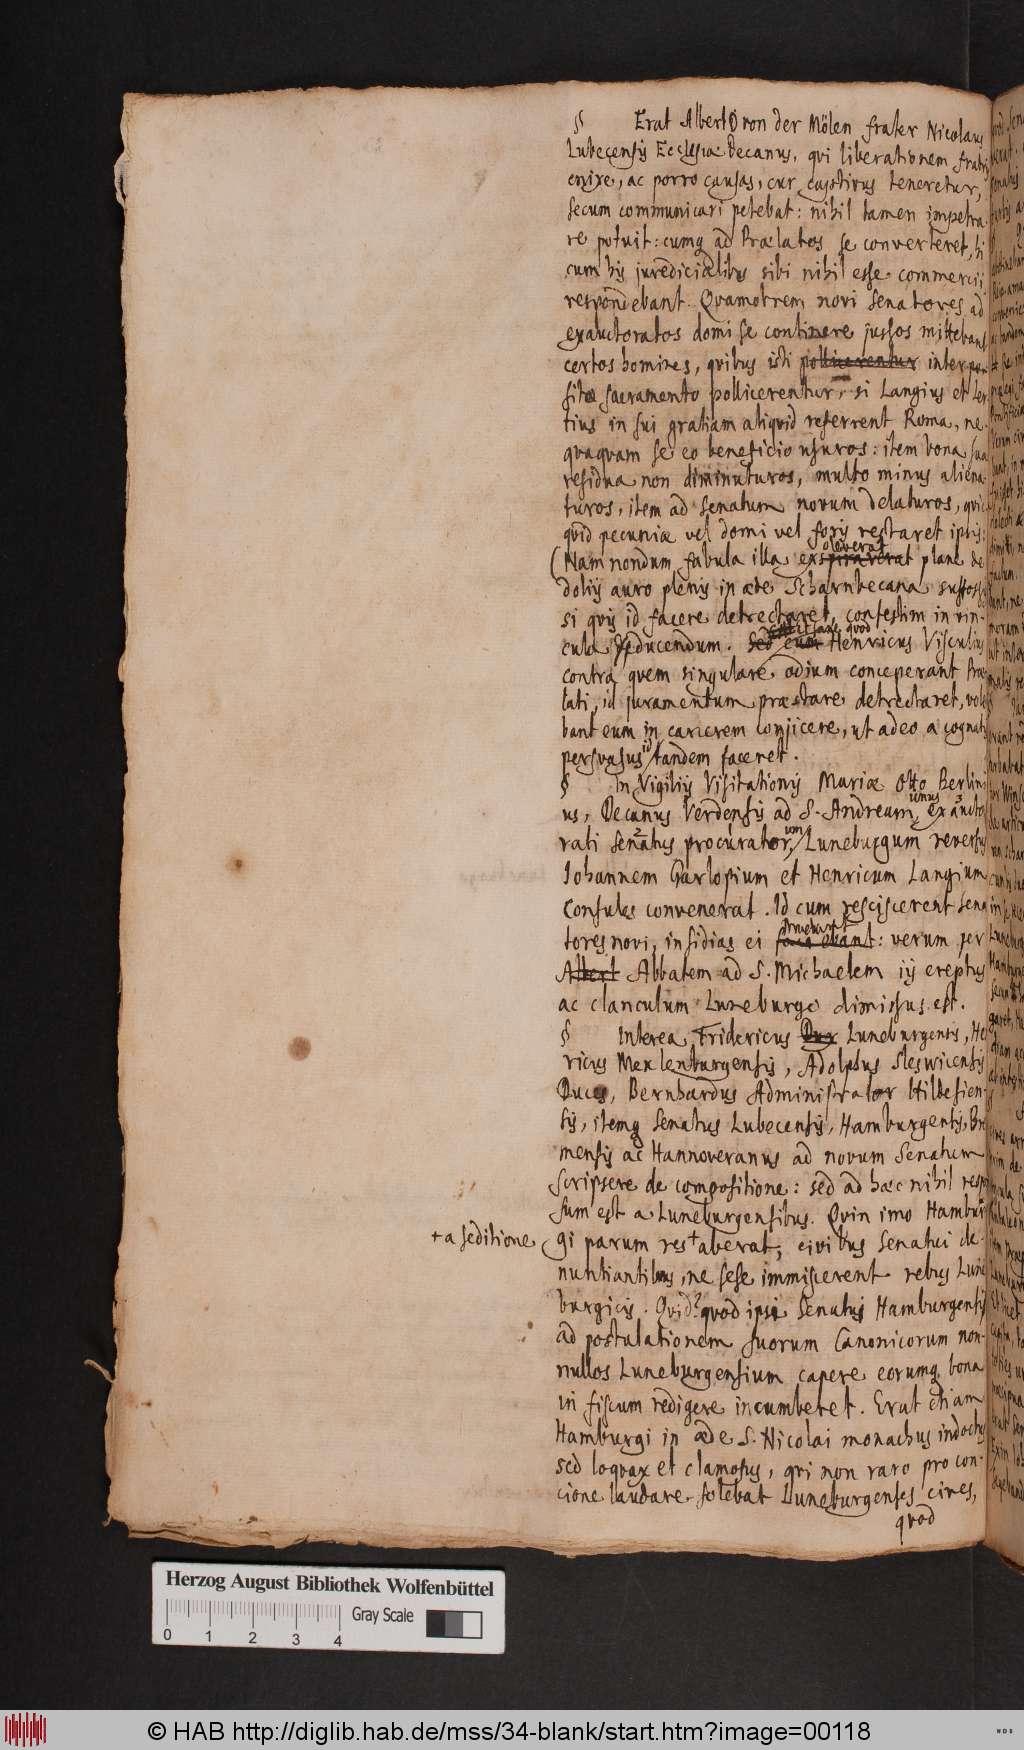 § Erat Alberti von der Mölen frater Nicolaus
Lubecensis Ecclesiæ Decanus, qui liberationem fratris
enixe, ac porro causas, cur captivus teneretur,
secum communicari petebat: nihil tamen impetra-
re potuit: cumq ad Prælatos se converteret, hi
cum his juredicialibus sibi nihil esse commercii
respondebant. Quamobrem novi Senatores ad
exauctoratos domi se continere jussos mittebant
certos homines, quibus isti pollicerentur interpo-
sitæ sacramento pollicerentur, si Langius et Ler
tius in sui gratiam aliquid referrent Roma, ne-
quaquam se eo beneficio usuros: item bona sua
residua non diminuturos, multo minus aliena-
turos, item ad Senatum novum delaturos, quic
quid pecuniæ vel domi vel foris restaret ipsis:
oleverat
(Nam nondum fabula illa exspiraverat plane de
doliis auro plenis in æde Scharnbecana suffossis
si quis id facere detrectaret, confestim in vin-
quod
cula deducendum. Sed eum Henricus Visculius
contra quem singulare odium conceperant Præ
lati, id juramentum præstare detrectaret, vole
bant eum in carcerem conjicere, ut adeo a cognatis
persvasus id tandem faceret.
§ In Vigiliis Visitationis Mariæ Otto Berlini
us, Decanus Verdensis ad S. Andream, unus exaucto
rati Senatus procurator,um Luneburgum reversus
Iohannem Garlopium et Henricum Langium
Consules convenerat. Id cum resciscerent Sena
struebant
tores novi, insidias ei : verum per
Albert Abbatem ad S. Michaelem iis ereptus
ac clanculum Luneburgo dimissus est.
§ Interea Fridericus Dux Luneburgensis, Hen
ricus Meklenburgensis, Adolphus Sleswicensis
Duces, Bernhardus Administrator Hildesien-
sis, itemq Senatus Lubecensis, Hamburgensis, Bre
mensis ac Hannoveranus ad novum Senatum
scripsere de compositione: sed ad hæc nihil respon
sum est a Luneburgensibus. Quin imo Hambur
+ a seditione
gi parum res + aberat, civibus Senatui de-
nuntiantibus, ne sese immiscerent rebus Lune
burgicis. Quid? quod ipse Senatus Hamburgensis
ad postulationem suorum Canonicorum non-
nullos Luneburgensium capere eorumq bona
in fiscum redigere incumberet. Erat etiam
Hamburgi in æde S. Nicolai monachus indoctus
sed loquax et clamosus, qui non raro pro con-
cione laudare solebat Luneburgenses cives,
quod
Herzog August Bibliothek Wolfenbüttel
Gray Scale
0 1 2 3 4
© HAB http://diglib.hab.de/mss/34-blank/start.htm?image=00118